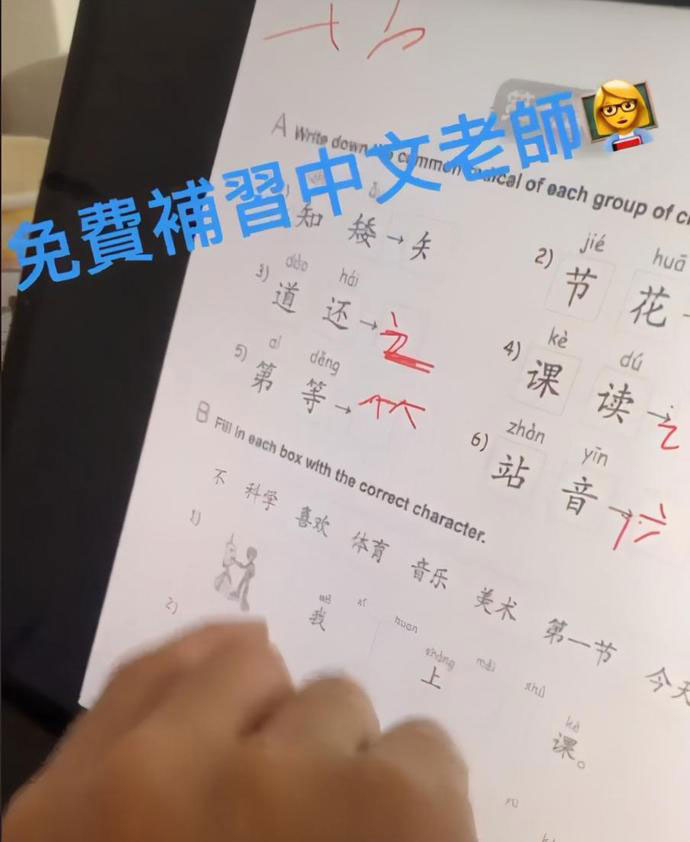 免費補習中文老師👩‍🏫
A Write down the common radical of each group of
1)
知 矮→矢
2) jié huā
节 花
3) dào hái
道 还→辶
4) kè dú
课 读→讠
5) dì děng
第 等→⺮
6) zhàn yīn
站 音→立
B Fill in each box with the correct character.
不 科学 喜欢 体育 音乐 美术 第一节 今天
1)
我
huan
2)
shàng
上
shù
kè
课。